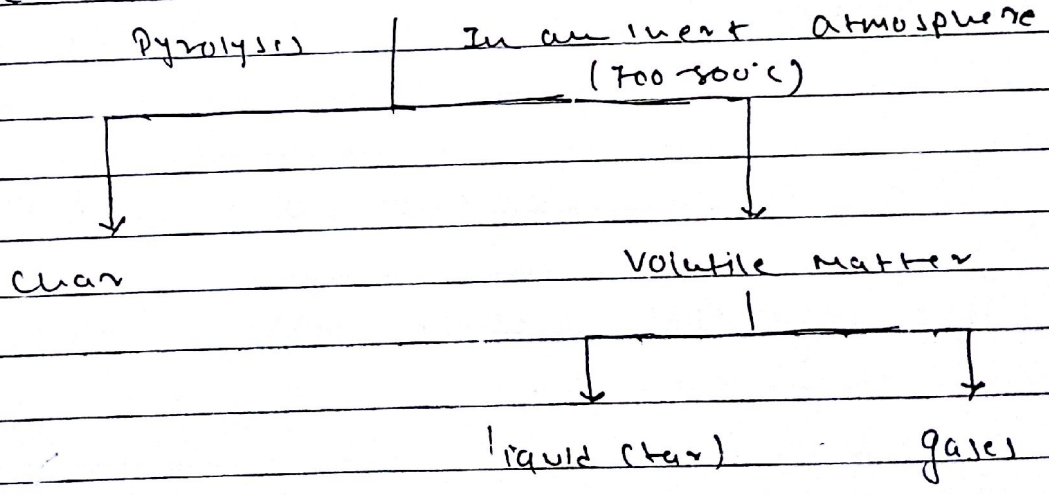 Pyrolysis In an inert atmosphere
(700-800°C)
Char
Volatile matter
liquid (tar) gases